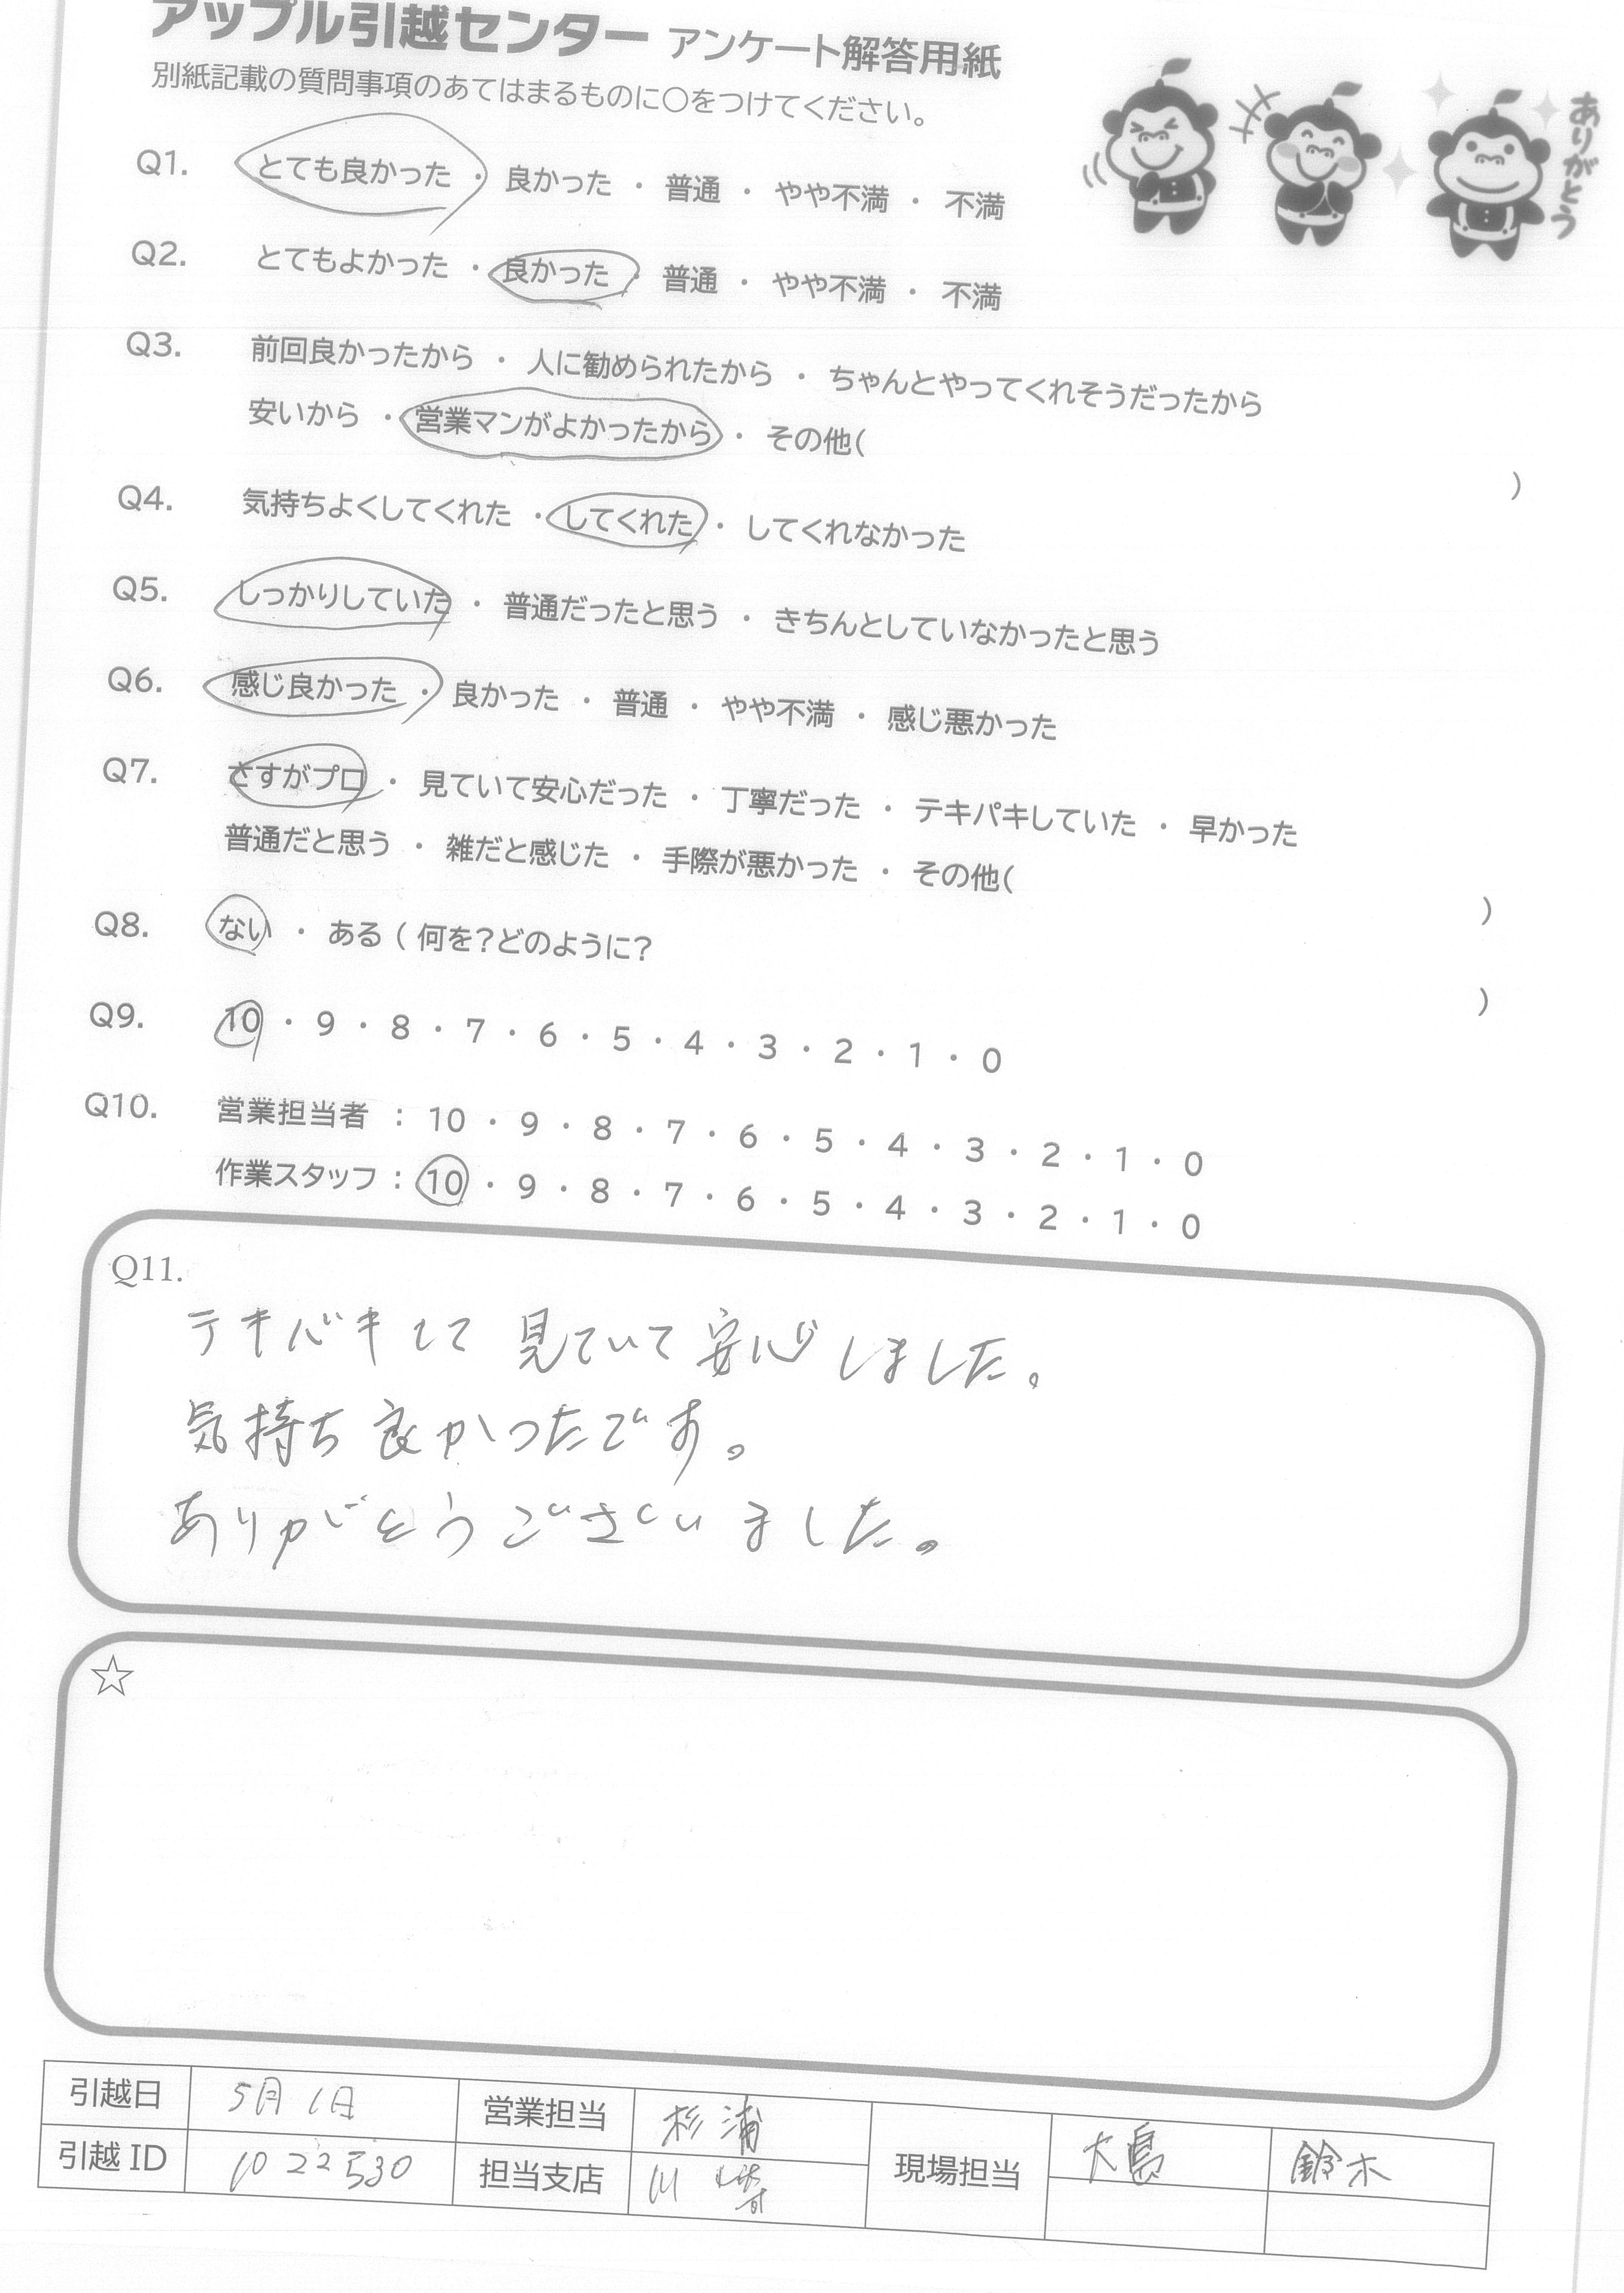 アップル引越センター アンケート解答用紙
別紙記載の質問事項のあてはまるものに○をつけてください。
ありがとう
Q1. とても良かった ・ 良かった ・ 普通 ・ やや不満 ・ 不満
Q2. とてもよかった ・ 良かった ・ 普通 ・ やや不満 ・ 不満
Q3. 前回良かったから ・ 人に勧められたから ・ ちゃんとやってくれそうだったから
安いから ・ 営業マンがよかったから ・ その他( )
Q4. 気持ちよくしてくれた ・ してくれた ・ してくれなかった
Q5. しっかりしていた ・ 普通だったと思う ・ きちんとしていなかったと思う
Q6. 感じ良かった ・ 良かった ・ 普通 ・ やや不満 ・ 感じ悪かった
Q7. さすがプロ ・ 見ていて安心だった ・ 丁寧だった ・ テキパキしていた ・ 早かった
普通だと思う ・ 雑だと感じた ・ 手際が悪かった ・ その他( )
Q8. ない ・ ある ( 何を?どのように? )
Q9. 10 ・ 9 ・ 8 ・ 7 ・ 6 ・ 5 ・ 4 ・ 3 ・ 2 ・ 1 ・ 0
Q10. 営業担当者 : 10 ・ 9 ・ 8 ・ 7 ・ 6 ・ 5 ・ 4 ・ 3 ・ 2 ・ 1 ・ 0
作業スタッフ : 10 ・ 9 ・ 8 ・ 7 ・ 6 ・ 5 ・ 4 ・ 3 ・ 2 ・ 1 ・ 0
Q11.
テキパキして 見ていて 安心しました。
気持ち良かったです。
ありがとうございました。
☆
引越日 5月1日 営業担当 杉浦 現場担当 大島 鈴木
引越ID 1022530 担当支店 川崎